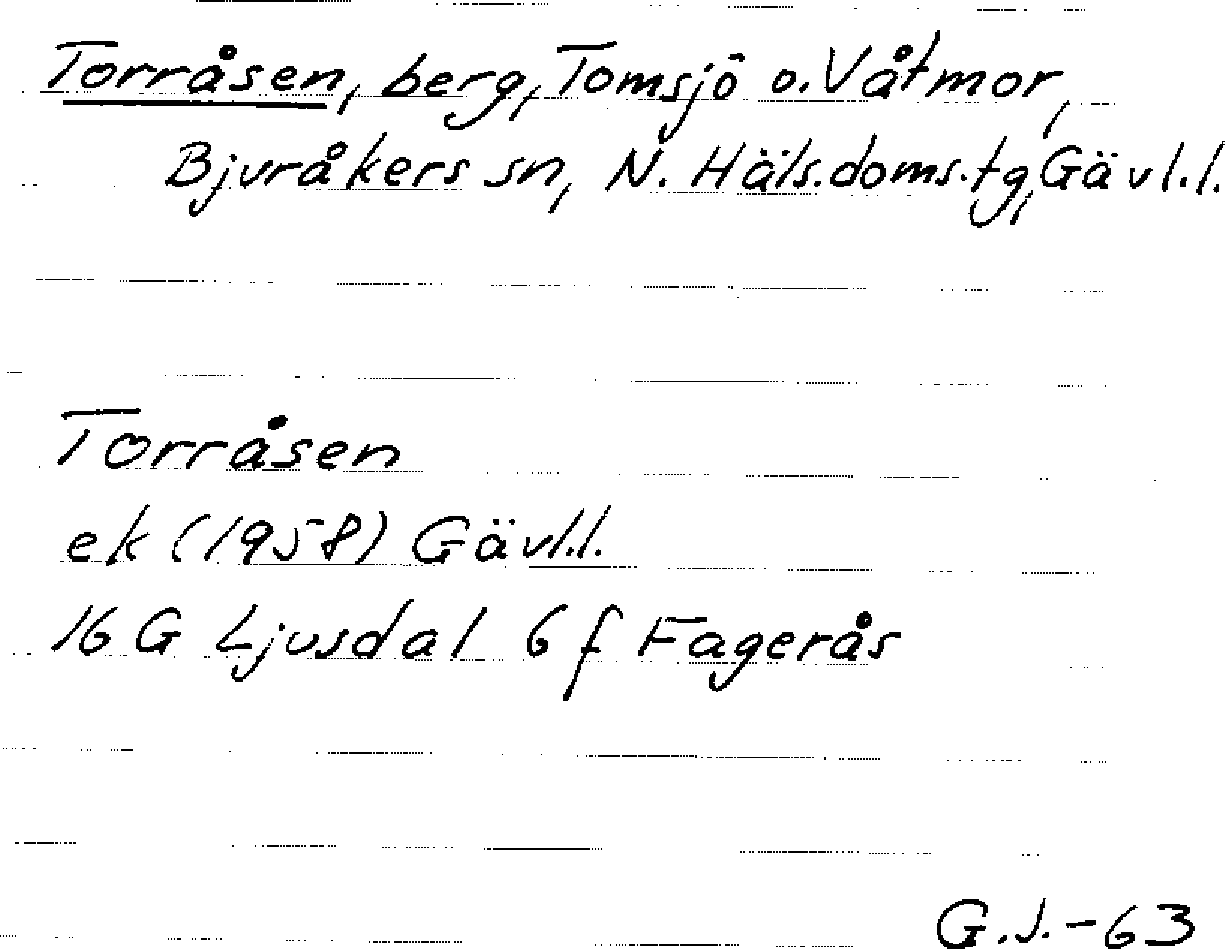 Torråsen, berg, Tomsjö o. Våtmor,
Bjuråkers sn, N. Häls. doms. tg, Gävl.l.
Torråsen
ek (1958) Gävl.l.
16 G Ljusdal 6 f Fagerås
G.J.-63